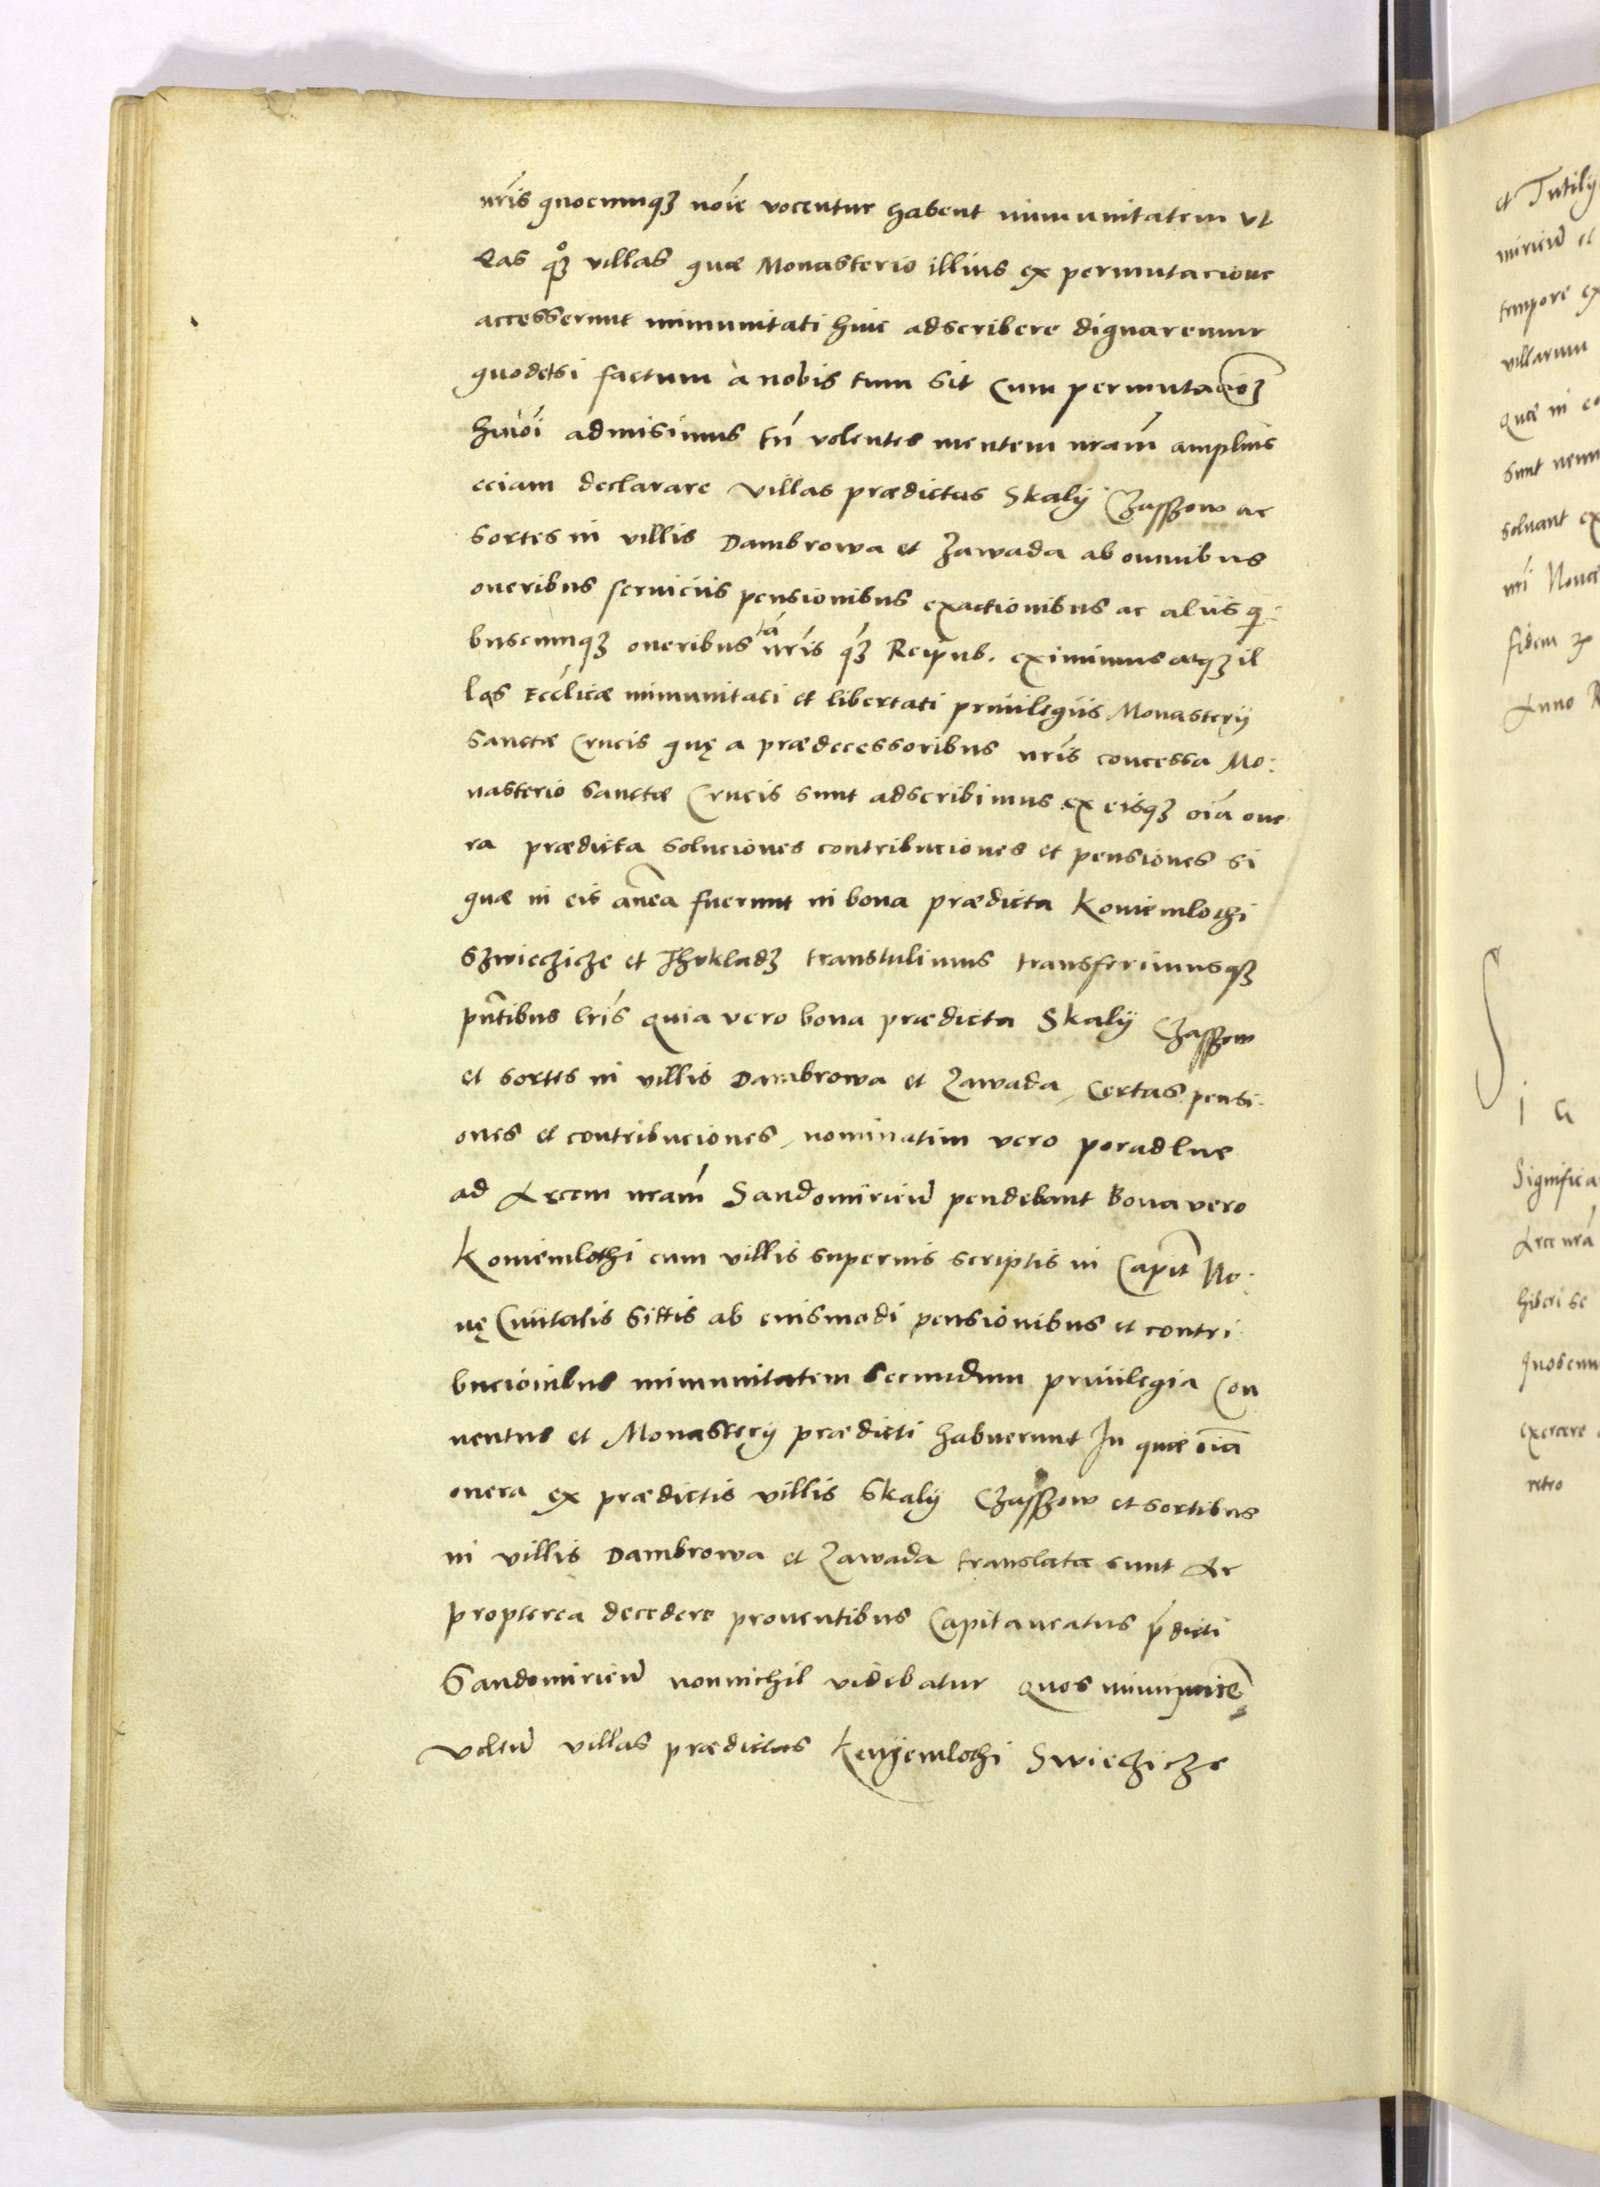 nr̃is quocunqʒ noĩe vocentur habent immunitatem ut
Eas qʒ villas quæ Monasterio illius ex permutacione
accesserunt immunitati huic adscribere dignaremur
quodetsi factum a nobis tum sit Cum permutacioʒ
hmõi admisimus tñ volentes mentem nrãm amplius
eciam declarare Villas prædictas Skaly Czasszow ac
sortes in villis Dambrowa et Zawada ab omnibus
oneribus seruiciis pensionibus exactionibus ac aliis qi:
buscunqʒ oneribus tã nr̃is qʒ Reipub. eximimus atqʒ il
las Eccĺicæ immunitati et libertati priuilegiis Monasterij
Sanctæ Crucis quę a prædecessoribus nr̃is concessa Mo:
nasterio Sanctæ Crucis sunt adscribimus ex eisqʒ oĩa one
ra prædicta soluciones contribuciones et pensiones si
quæ in eis añea fuerunt in bona prædicta Koniemlothi
Szwieczicze et Thukladʒ transtulimus transferimusqʒ
pñtibus lr̃is quia vero bona prædicta Skaly Czasszow
et sortes in villis Dambrowa et Zawada, Certas pensi:
ones et contribuciones, nominatim vero poradlne
ad Arcem nrãm Sandomirieñ pendebant Bona vero
Koniemlothi cum villis supernis scriptis in Capit No:
uę Ciuitatis sittis ab eiusmodi pensionibus et contri
bucionibus immunitatem secundum priuilegia Con
uentus et Monasterij prædicti habuerunt In quæ oĩa
onera ex prædictis villis Skaly Czasszow et sortibus
in villis Dambrowa et Zawada translata sunt Ac
propterea decedere prouentibus Capitaneatus p̃dicti
Sandomirieñ nonnichil videbatur Quos
Volueñ villas prædictas Konyemlothi Swieczicze
et Tutily
mirieñ et
tempore ex
villarum
Quæ in eo
Sunt
soluant ex
nr̃i Nouæ
fidem
Anno
Significa
Arce nrã
hiberi se
Quoscun
exercere
retro